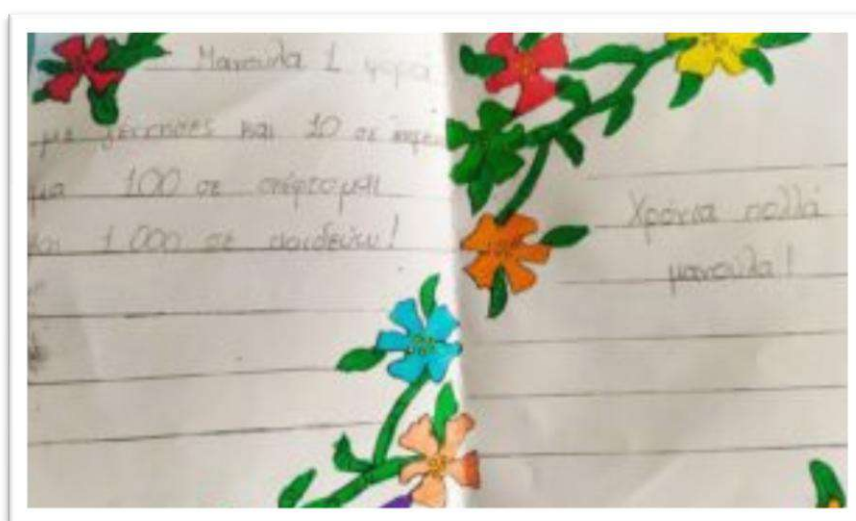 Μανούλα 1 φορά
με γέννησες και 10 σε
μα 100 σε σκέφτομαι
και 1000 σε παιδεύω!
Χρόνια πολλά
μανούλα!